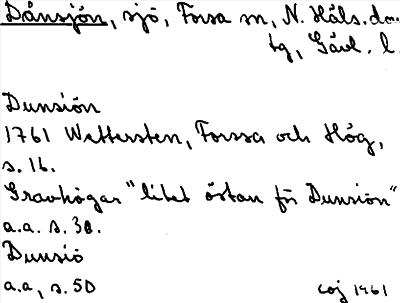 Dånsjön, sjö, Forsa sn, N. Häls. dms.
tg, Gävl. l.
Dunsiön
1761 Wettersten, Forssa och Hög,
s. 16.
Gravhögar "litet östan för Dunsiön"
a.a. s. 30.
Dunsiö
a.a, s. 50
coj 1961